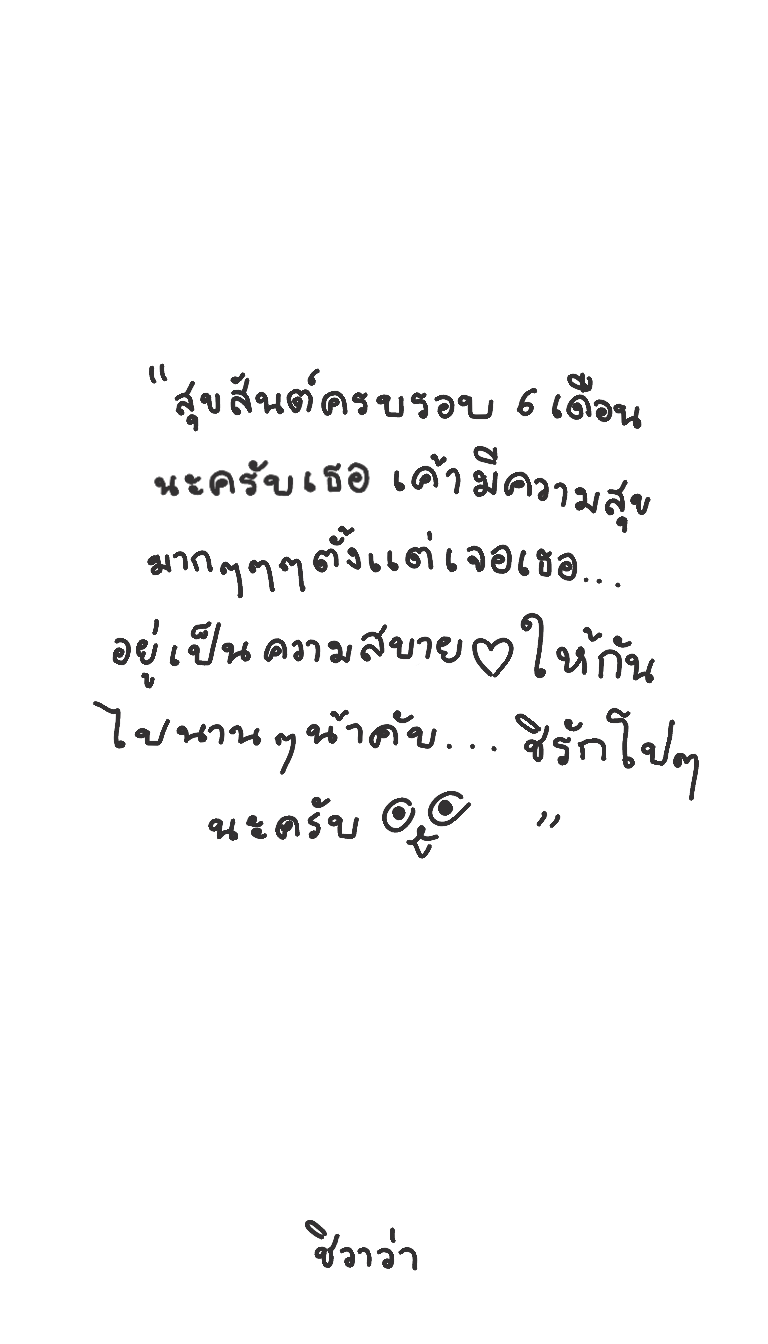 "สุขสันต์ครบรอบ 6 เดือน
นะครับเธอ เค้ามีความสุข
มากๆๆๆตั้งแต่เจอเธอ...
อยู่เป็นความสบาย♡ให้กัน
ไปนานๆน้าคับ... ชิรักโปๆ
นะครับ "
ชิวาว่า